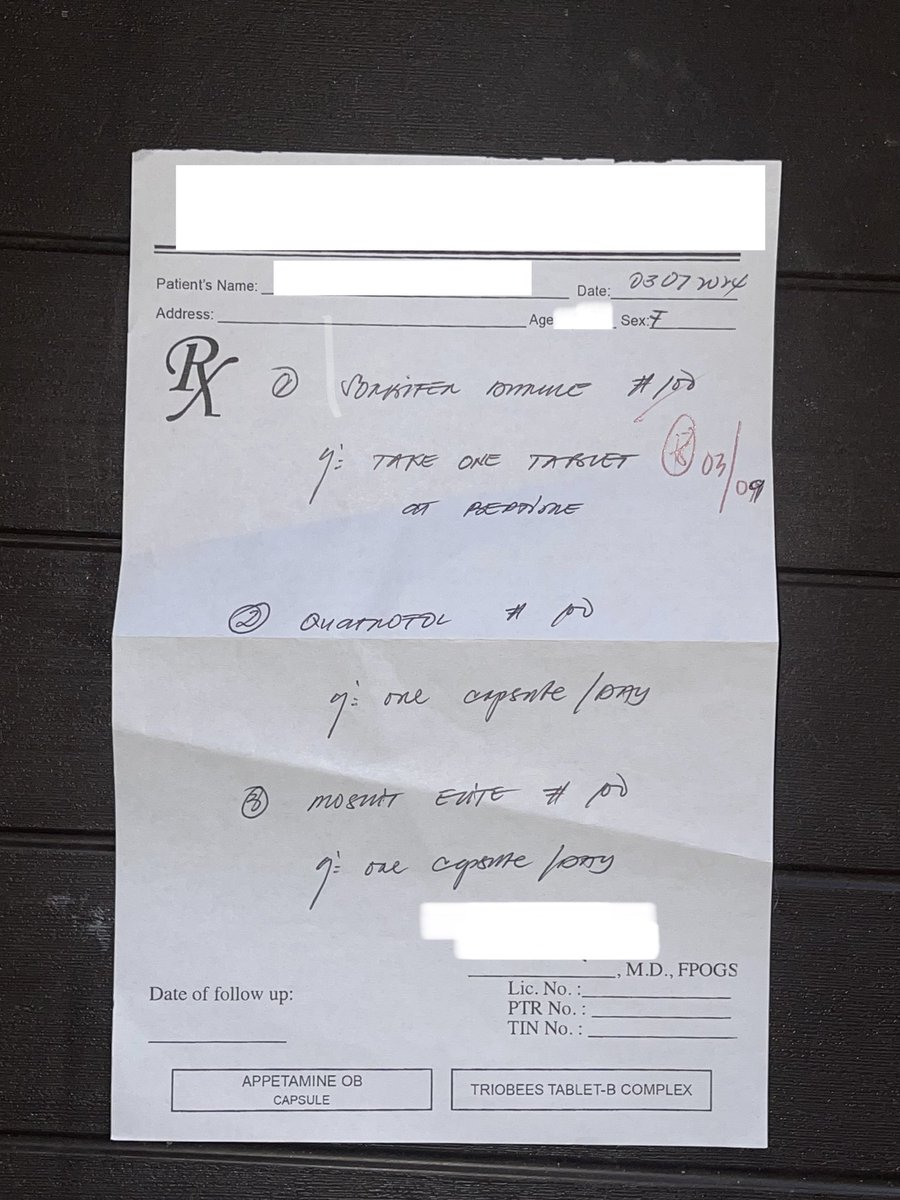 Patient's Name: Date: 03 07 2024
Address: Age Sex: F
Rx ① # 100
TAKE ONE TABLET 03/09
at BEDTIME
② QUATROTOL # 100
one capsule/DAY
③ # 100
one capsule/DAY
, M.D., FPOGS
Lic. No. :
Date of follow up:
PTR No. :
TIN No. :
APPETAMINE OB
CAPSULE
TRIOBEES TABLET-B COMPLEX